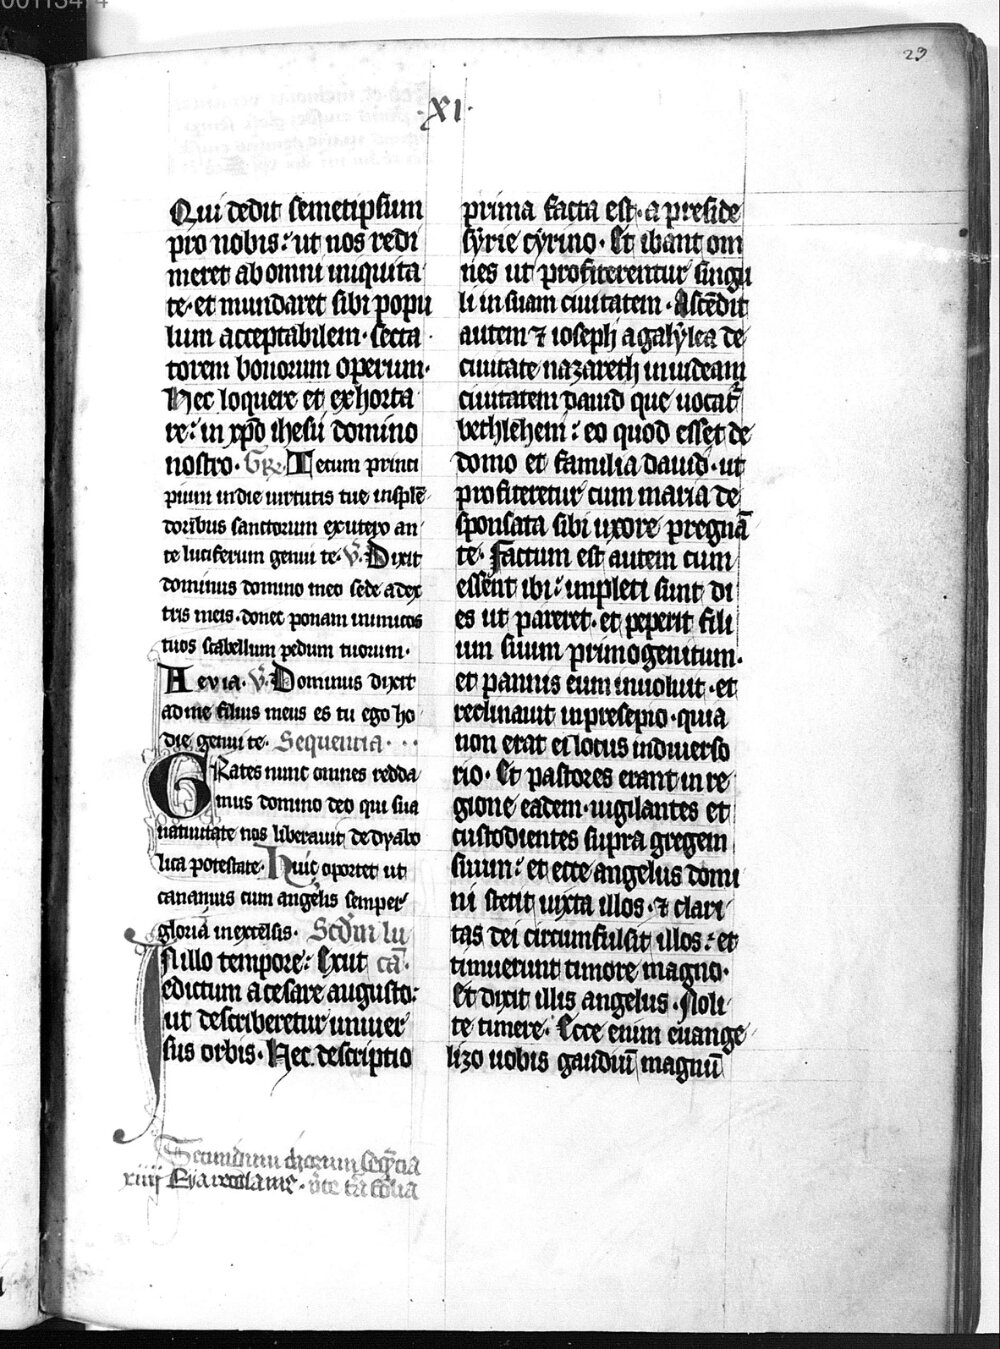 00113474
23
·XI·
Qui dedit semetipsum
pro nobis: ut nos redi
meret ab omni iniquita
te· et mundaret sibi popu
lum acceptabilem· secta
torem bonorum operum·
Hec loquere et exhorta
re: in xp̄o ihesu domino
nostro· GR̄· Tecum princi
pium in die virtutis tue in splē
doribus sanctorum ex utero an
te luciferum genui te· V̄· Dixit
dominus domino meo sede a dex
tris meis· donec ponam inimicos
tuos scabellum pedum tuorum·
Aevia· V̄· Dominus dixit
ad me filius meus es tu ego ho
die genui te· Sequentia· · ·
GRates nunc omnes redda
mus domino deo qui sua
nativitate nos liberavit de dyabo
lica potestate· Huic oportet ut
canamus cum angelis semper
gloria in excelsis· Scd̄m lu
IN illo tempore: Exiit cā·
edictum a cesare augusto:
ut describeretur univer
sus orbis· Hec descriptio
Secundum chorum seq̄cia
xiiii Eya recolamus· folia
prima facta est· a preside
syrie cyrino· Et ibant om
nes ut profiterentur singu
li in suam civitatem· Ascēdit
autem ⁊ ioseph a galylea de
civitate nazareth in iudeam
civitatem david que vocat᷑
bethlehem: eo quod esset de
domo et familia david· ut
profiteretur cum maria de
sponsata sibi uxore pregnā
te· Factum est autem cum
essent ibi: impleti sunt di
es ut pareret· et peperit fili
um suum primogenitum·
et pannis eum involvit· et
reclinavit in presepio· quia
non erat ei locus in diverso
rio· Et pastores erant in re
gione eadem· vigilantes et
custodientes supra gregem
suum: et ecce angelus domi
ni stetit iuxta illos· ⁊ clari
tas dei circumfulsit illos: et
timuerunt timore magno·
Et dixit illis angelus· Noli
te timere· Ecce enim euange
lizo vobis gaudiū magnū